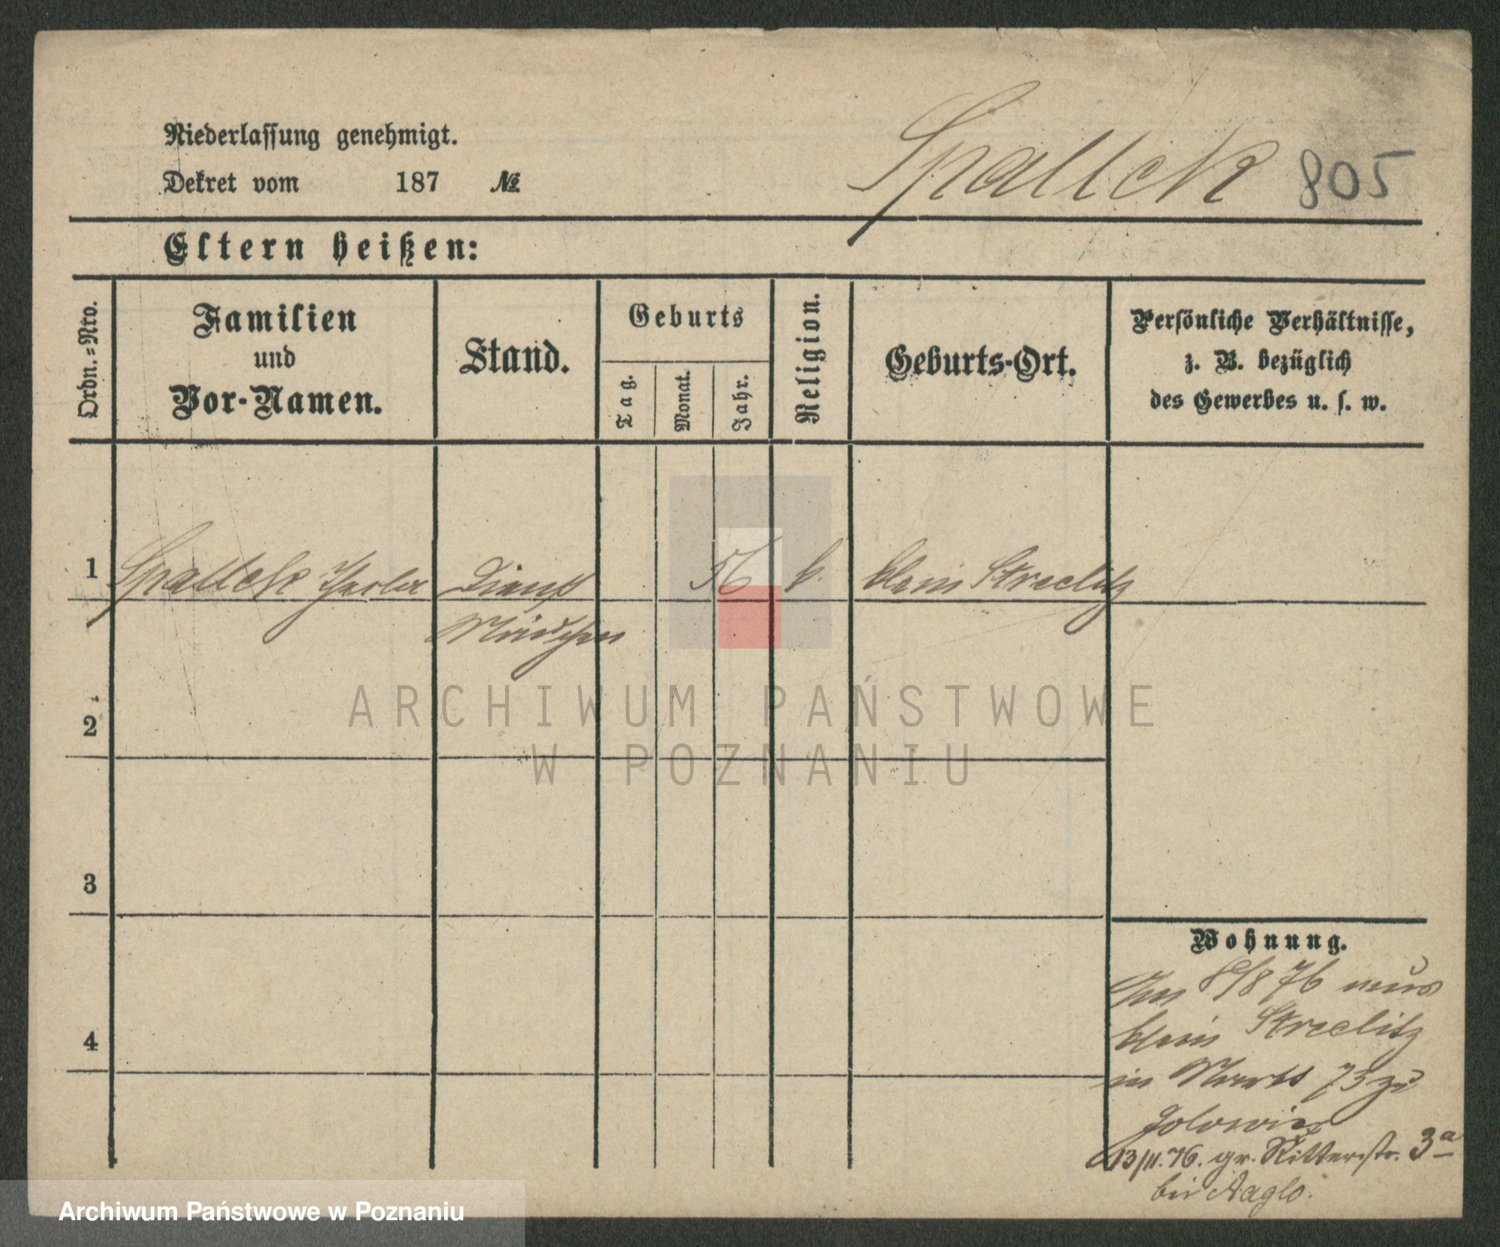 Niederlassung genehmigt.
Dekret vom 187 №
Spallek 805
Eltern heißen:
Ordn.=Nro.
Familien
und
Vor-Namen.
Stand.
Geburts
Tag.
Monat.
Jahr.
Religion.
Geburts-Ort.
Persönliche Verhältnisse,
z. B. bezüglich
des Gewerbes u. s. w.
1 Spallek Dienst 56 k. klein Strelitz
Mädchen
2
3
4
ARCHIWUM PAŃSTWOWE
W POZNANIU
Wohnung.
8/8 76 aus
klein Strelitz
in 75 zu
13/11. 76. gr. Ritterstr. 3a
bei Naglo.
Archiwum Państwowe w Poznaniu